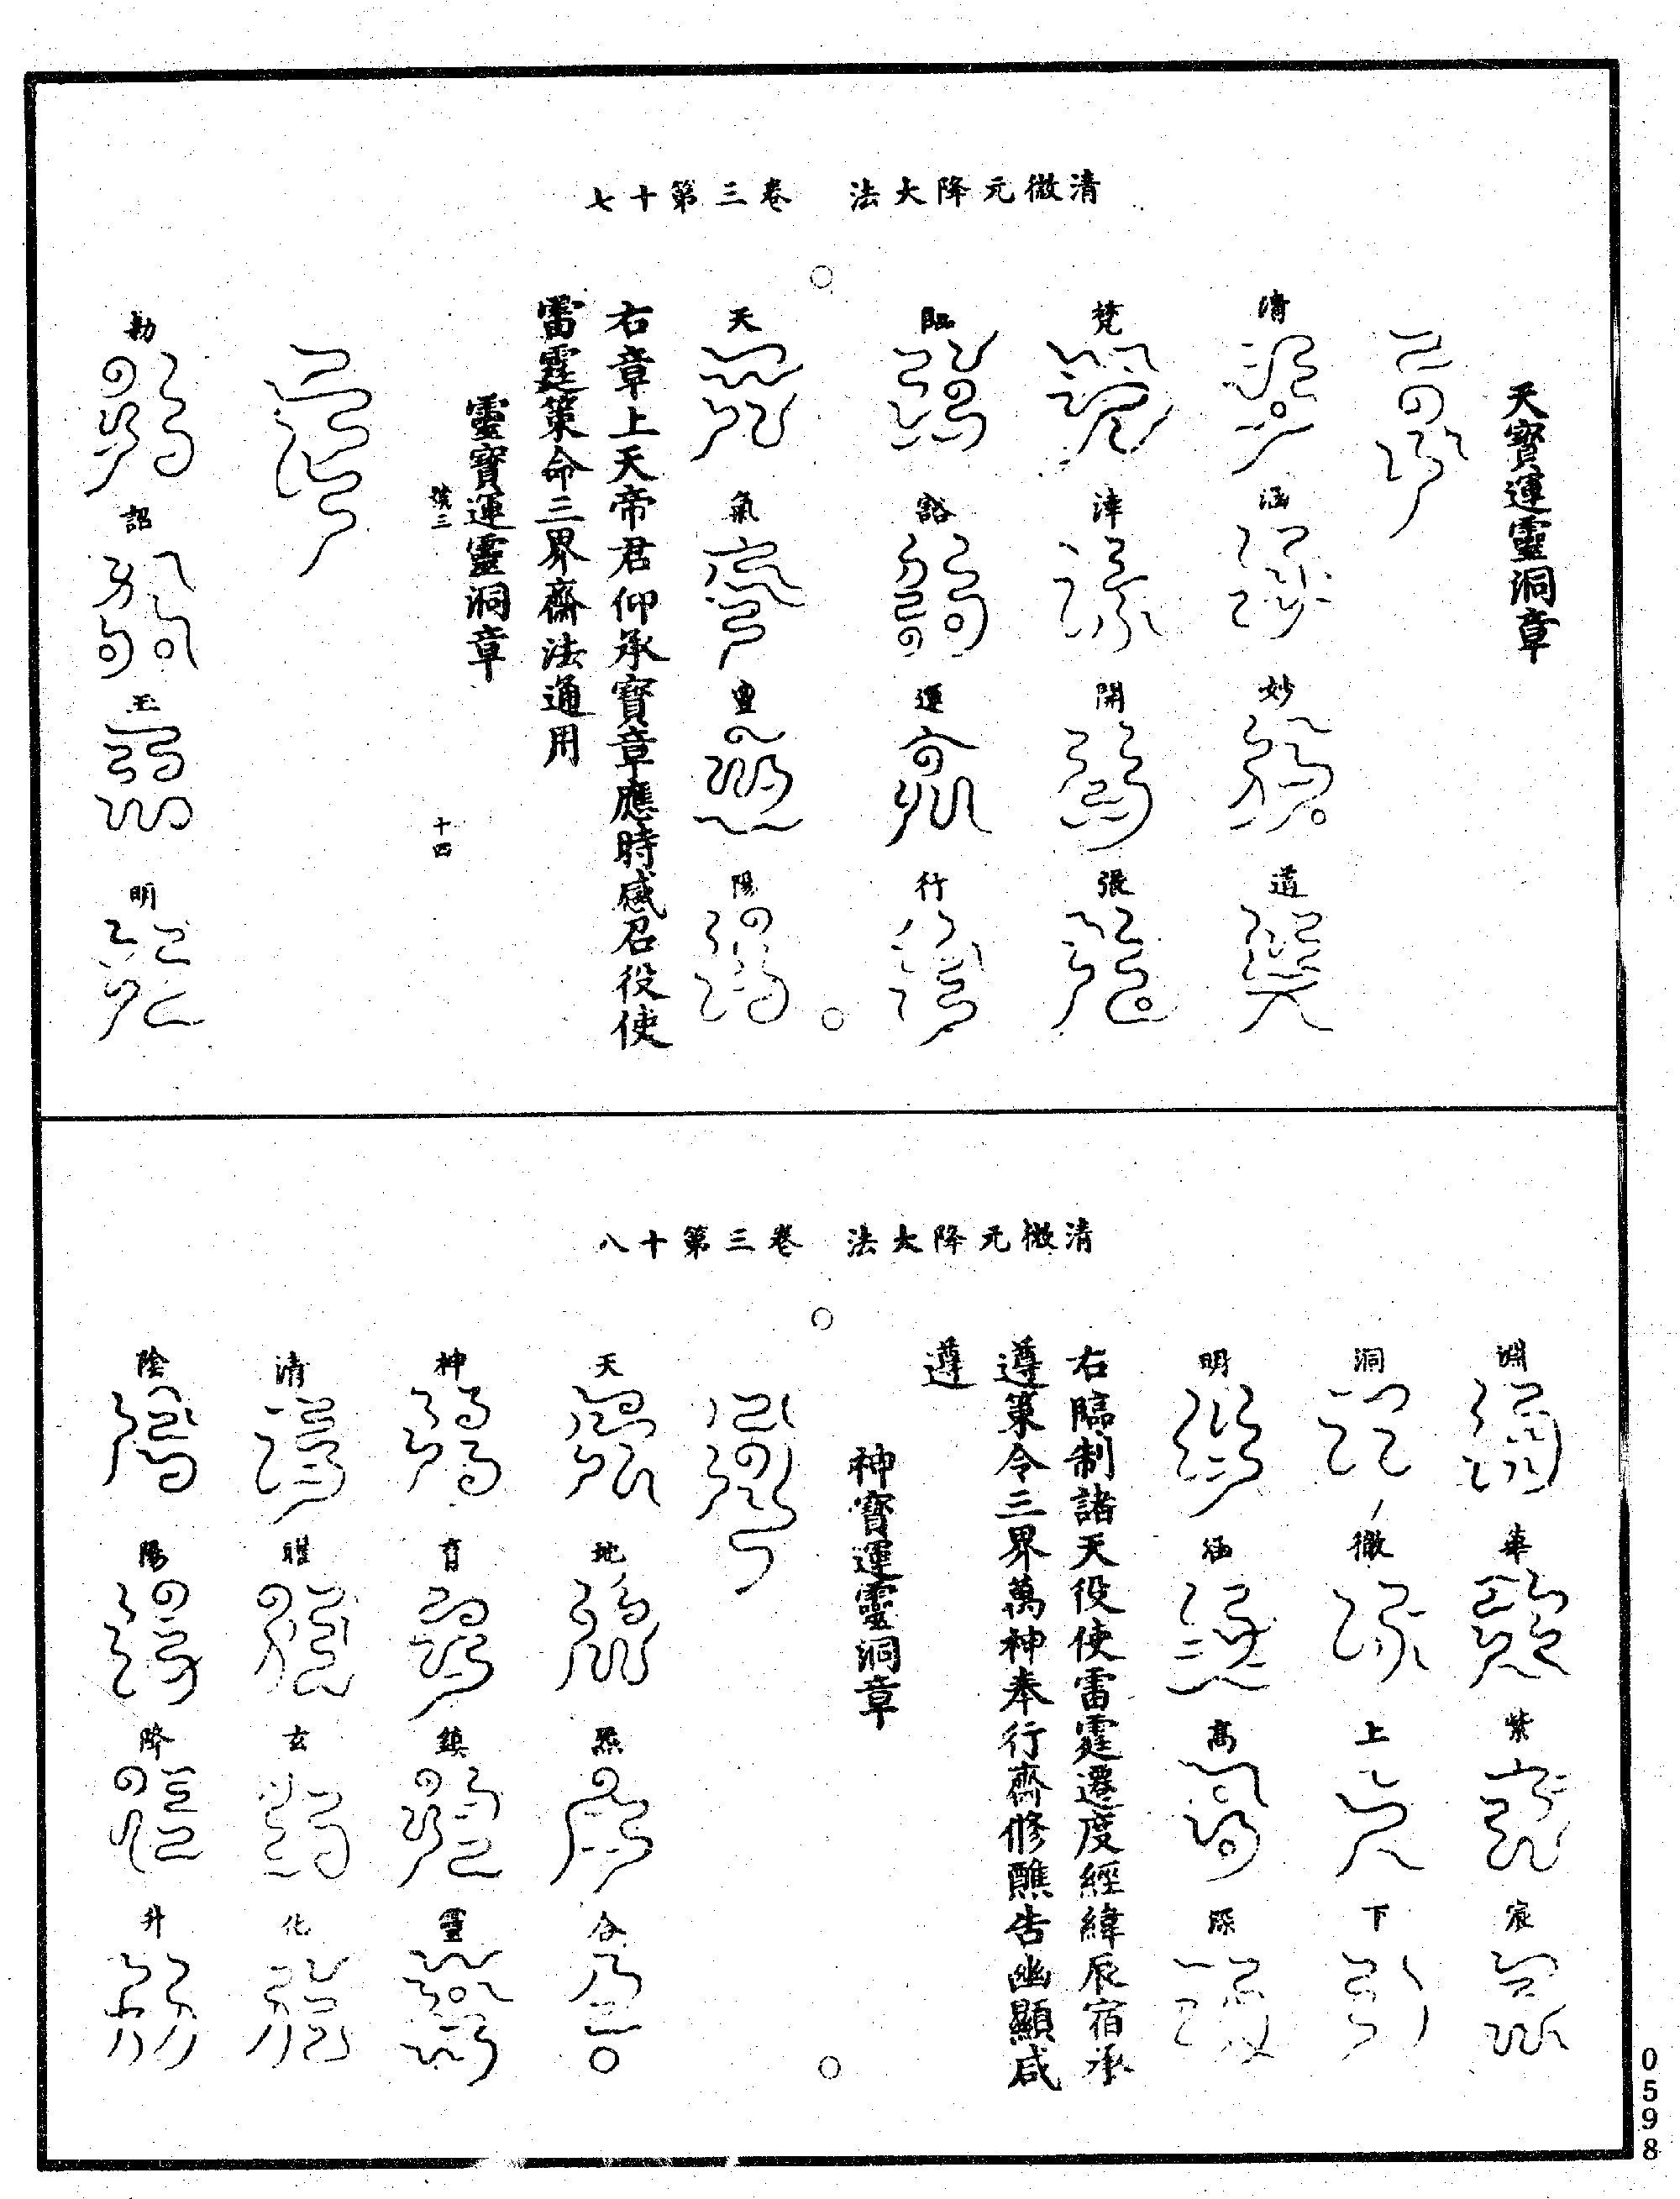 清微元降大法　卷三第十七
天寶運靈洞章
清　涵　妙　道
梵　津　開　張
臨　豁　運　行
天　氣　豊　陽
右章上天帝君仰承寶章應時感召役使
雷霆策命三界齋法通用
靈寶運靈洞章
三　十四
勅　詔　玉　明
清微元降大法　卷三第十八
淵　華　紫　宸
洞　徹　上　下
明　涵　高　深
右臨制諸天役使雷霆遷度經緯辰宿承
遵策令三界萬神奉行齋修醮告幽顯咸
遵
神寶運靈洞章
天　地　炁　合
神　育　鎮　靈
清　玄　化
陰　陽　降　升
0598